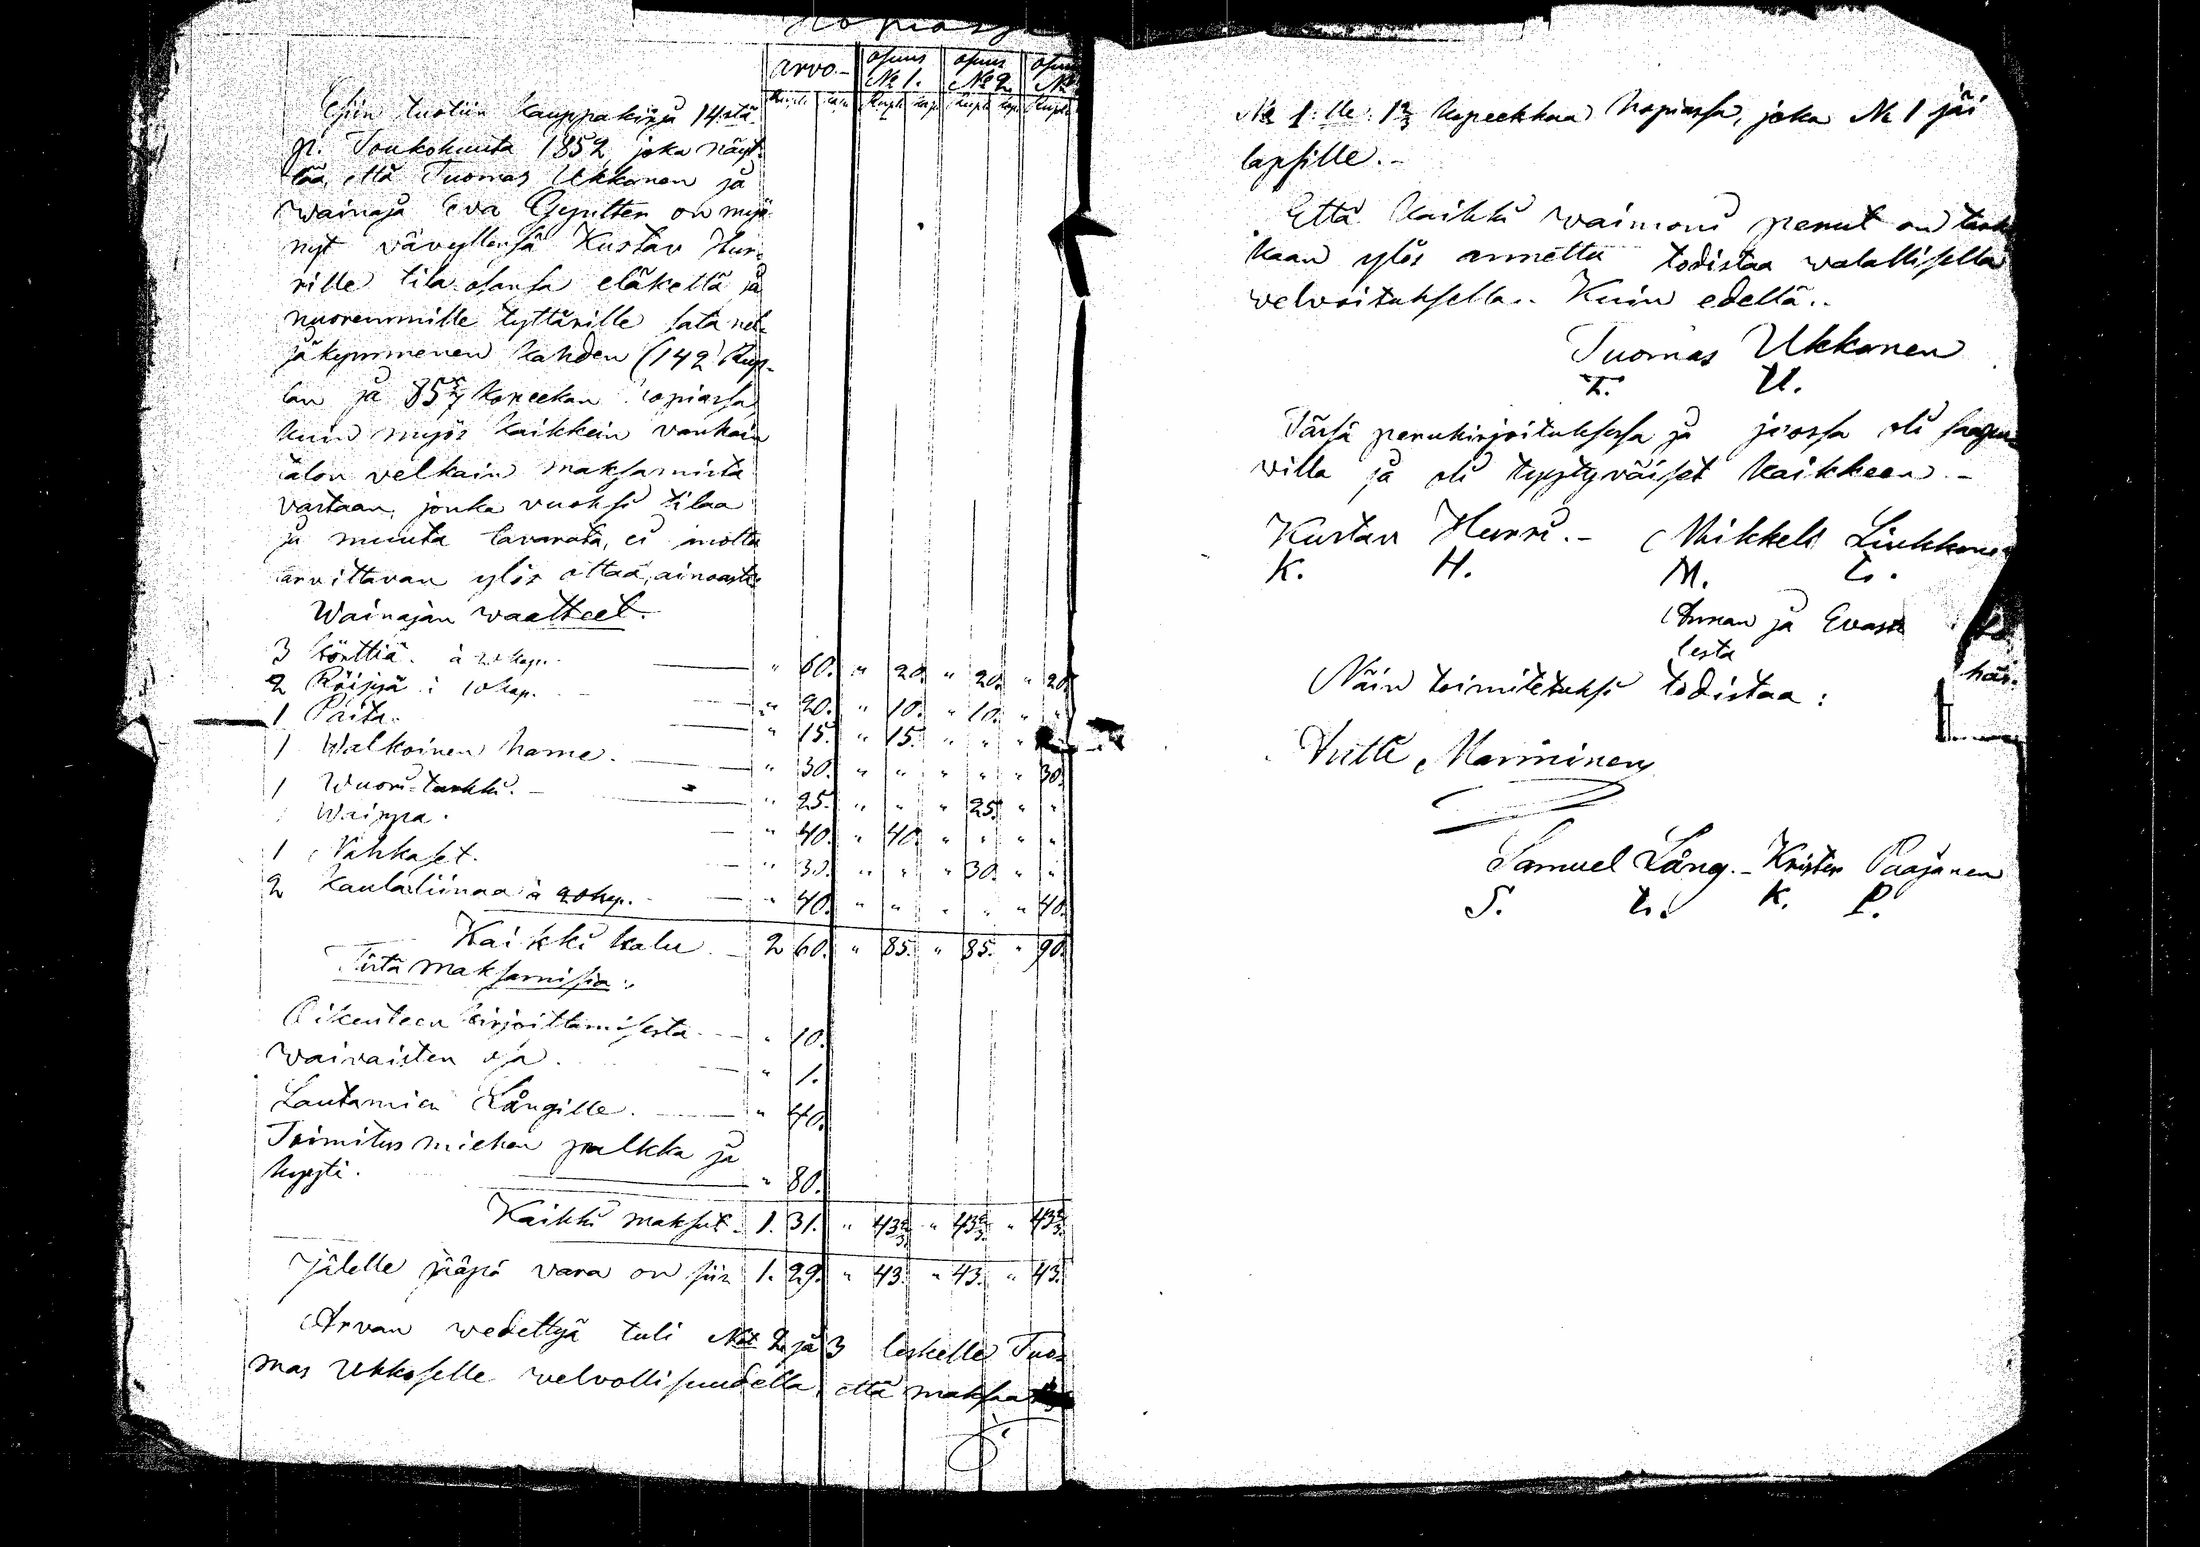 Hopiassa
Arvo.- osuus № 1. osuus № 2. osuus №
Rupl. kop. Rupl. kop. Rupl. kop. Rupl.
Esiin tuotiin kauppakirja 14:stä
p. Toukokuuta 1852, joka näyt-
tää, että Tuomas Ukkonen ja
wainaja Eva Gynther on myö-
nyt vävyllensä Kustav Hur-
rille tila-osansa eläkettä ja
nuoremmille tyttärille sata nel-
jäkymmenen kahden (142) Rup-
lan ja 85 5/7 kopeekan hopiassa
kuin myös kaikkein vanhain
talon velkain maksamista
vastaan, jonka vuoksi tilaa
ja muuta tavarata, ei muotta
tarvittavan ylös ottaa, ainoasta
Wainajan waatteet.
3 Könttiä. à 20 kop. " 60. " 20. " 20. " 20.
2 Röijyä à 10 kop. " 20. " 10. " 10. " "
1 Paita. " 15. " 15. " " "
1 Walkoinen hame. " 30. " " " " " 30.
1 Wuori-turkki. " 25. " " " 25. " "
1 Waippa. " 40. " 40. " " " "
1 Nahkaset. " 30. " " " 30. " "
2 Kaulaliinaa à 20 kop. " 40. " " " " " 40.
Kaikki kalu. 2 60. " 85. " 85. " 90.
Tästä maksamisia:
Oikeuteen kirjoittamisesta " 10.
Waivaisten osa. " 1.
Lautamien Långille. " 40.
Toimitus miehen palkka ja
kyyti. " 80.
Kaikki maksut. 1. 31. " 43 2/3. " 43 2/3. " 43 2/3.
Jälelle jääpä vara on siis 1. 29. " 43. " 43. " 43.
Arvan wedettyä tuli Not 2 ja 3 leskelle Tuo-
mas Ukkoselle welvollisuudella, että maksaa
№ 1:lle 1 2/3 kopeekkaa hopiassa, joka № 1 jäi
lapsille.-
Että kaikki waimoni perut on tark
kaan ylös annettu todistaa walallisella
welvoituksella.. Kuin edellä..
Tuomas Ukkonen
T. U.
Tässä perukirjoituksessa ja jaossa oli saapu
willa ja oli tyytyväiset kaikkeen.-
Kustav Hurri.- Mikkeli Liukkone
K. H. M. L.
Annan ja Evast
lesta
Näin toimitetuksi todistaa:
Antti Manninen
Samuel Lång.- Krister Paajanen
S. L. K. P.